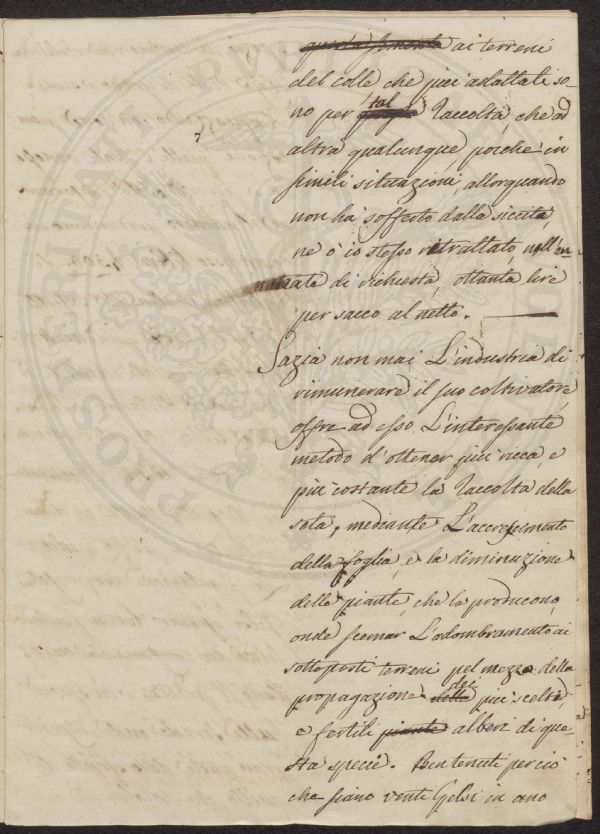 questa semente ai terreni
del colle che più addattati so-
no per tal Raccolta, che ad
altra qualunque, poiché in
simili situazioni allorquando
non ha sofferto dalla siccità,
ne ò io stesso ritrattato, nell'an
nata di richiesta, ottanta lire
per sacco al netto.
Sazia non mai L'industria di
rimunerare il suo coltivatore,
offre ad esso L'interessante
metodo d'ottener più ricca, e
più costante la Raccolta della
seta, mediante L'accrescimento
della foglia, e la diminuzione
delle piante, che la producono,
onde scemar L'adombramento ai
sottoposti terreni pel mezzo della
propagazione delle dei più scelti,
e fertili piante alberi di que-
sta specie. Ben tenuti perciò
che siano venti Gelsi in ano